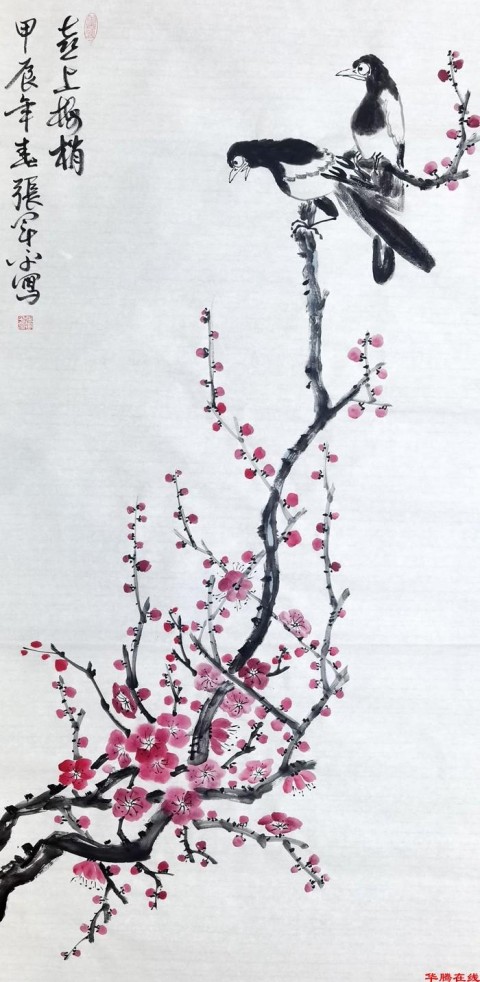 喜上梅梢
甲辰年春張军平寫
华腾在线